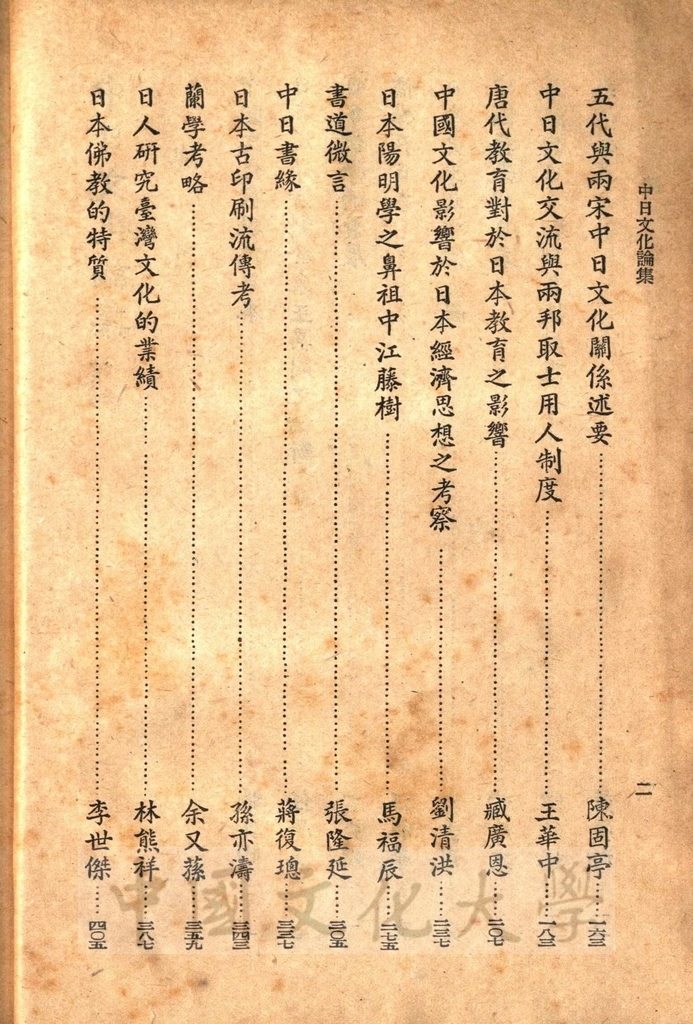 中日文化論集
二
五代與兩宋中日文化關係述要……陳固亭……一六三
中日文化交流與兩邦取士用人制度……王華中……一八三
唐代教育對於日本教育之影響……臧廣恩……二〇七
中國文化影響於日本經濟思想之考察……劉清洪……二三七
日本陽明學之鼻祖中江藤樹……馬福辰……二七五
書道微言……張隆延……三〇五
中日書緣……蔣復璁……三三七
日本古印刷流傳考……孫亦濤……三四三
蘭學考略……余又蓀……三五九
日人研究臺灣文化的業績……林熊祥……三八七
日本佛教的特質……李世傑……四〇五
中國文化大學